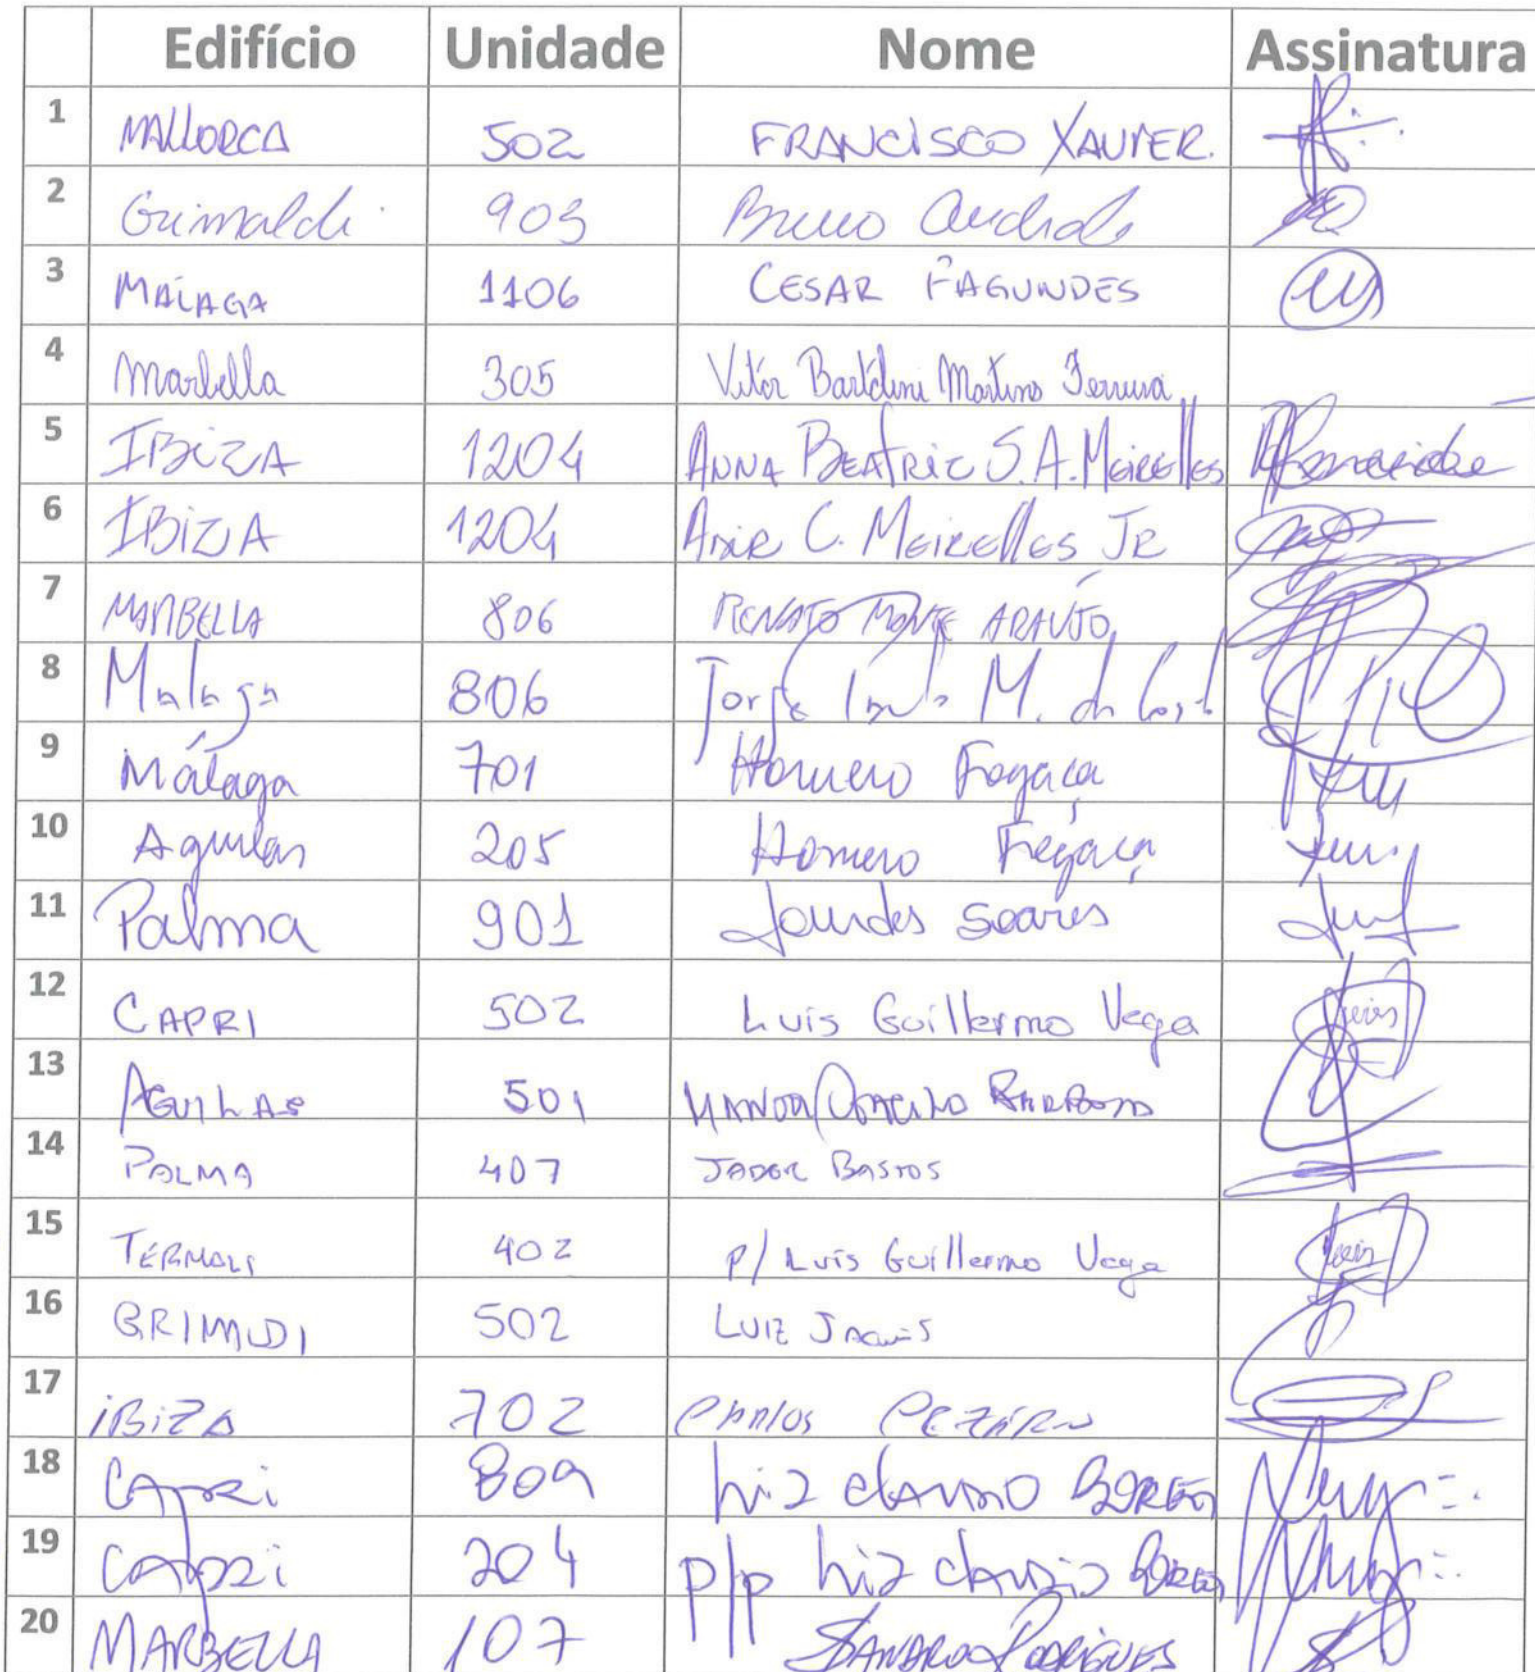 Edifício Unidade Nome Assinatura
1 MALLORCA 502 FRANCISCO XAVIER.
2 Grimaldi 903 Bruno Andrade
3 MÁLAGA 1106 CESAR FAGUNDES
4 Marbella 305 Vitor Bartolini Martins Ferreira
5 IBIZA 1204 ANNA BEATRIZ S.A. MEIRELLES
6 IBIZA 1204 C. MEIRELLES JR
7 MARBELLA 806 RENATO MONTE ARAÚJO
8 Malaga 806 Jorge M. da Costa
9 Málaga 701 Homero Fogaça
10 Aguilas 205 Homero Fogaça
11 Palma 901 Lourdes Soares
12 CAPRI 502 Luis Guillermo Vega
13 AGUILAS 501 BARBOSA
14 PALMA 407 JADER BASTOS
15 TERMOLI 402 P/ Luis Guillermo Vega
16 GRIMLDI 502 LUIZ
17 iBiZA 702 CARLOS
18 CAPRi 809 Luiz BORGES
19 CAPRi 204 p/p Luiz BORGES
20 MARBELLA 107 SANDRO RODRIGUES